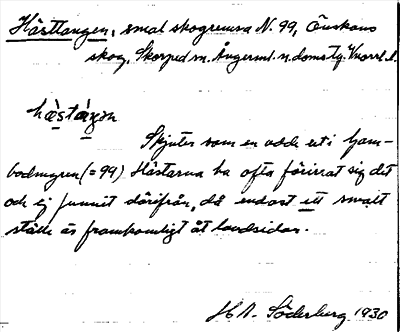 Hästtangen, smal skogremsa N. 99, Önskans
skog, Skorped sn. Ångerml. n. domstg. Vnorrl. l.
hästáŋən
Skjuter som en udde ut i Gam-
bodmyren (= 99) Hästarna ha ofta förirrat sig dit
och ej funnit därifrån, då endast ett smalt
ställe är framkomligt åt landsidan.
H. A. Söderberg 1930